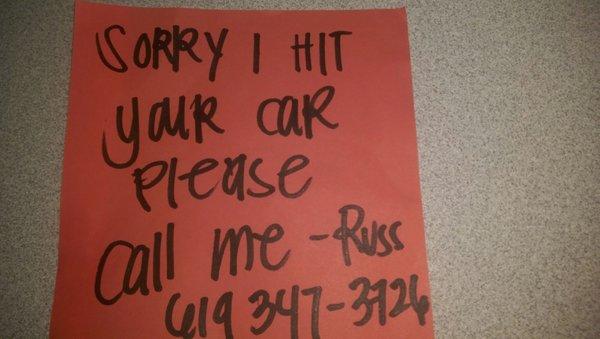 SORRY I HIT
YOUR CAR
please
Call me - Russ
619 347-3726